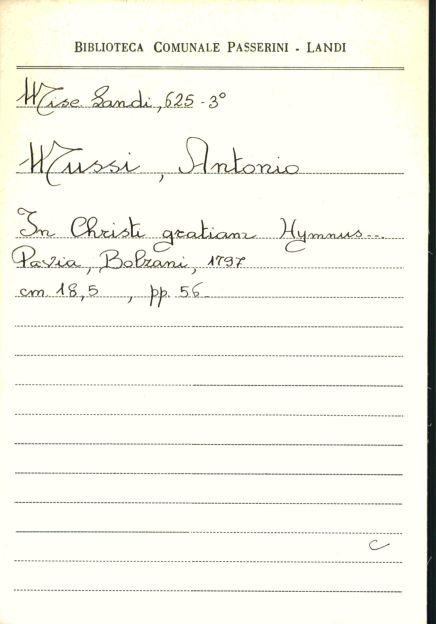 BIBLIOTECA COMUNALE PASSERINI - LANDI
Misc. Landi, 625-3°
Mussi, Antonio
In Christi gratiam Hymnus...
Pavia, Bolzani, 1797
cm. 18,5 , pp. 56
C